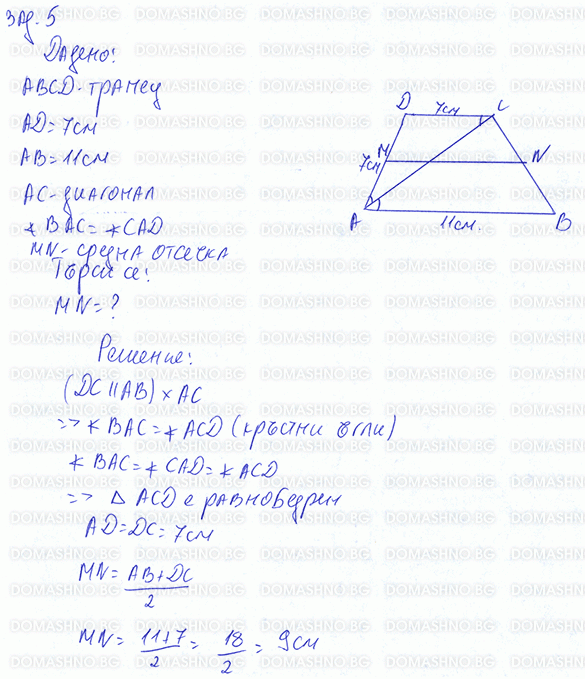 Зад. 5
Дадено:
ABCD - трапец
AD = 7см
AB = 11см
AC - диагонал
∢ BAC = ∢ CAD
MN - средна отсечка
Търси се:
MN = ?
D 7см C
M N
7см
A B
11см.
Решение:
(DC || AB) × AC
=> ∢ BAC = ∢ ACD (кръстни ъгли)
∢ BAC = ∢ CAD = ∢ ACD
=> △ ACD е равнобедрен
AD = DC = 7см
MN = AB + DC
2
MN = 11+7 = 18 = 9см
2 2
DOMASHNO.BG